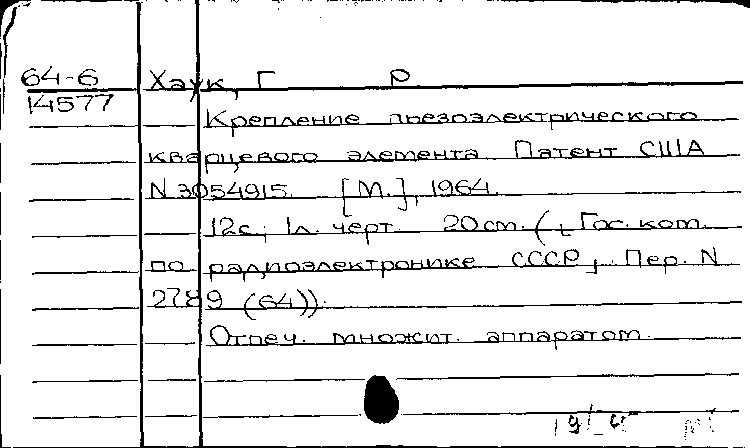 64-6 Хаук, Г Р
14577
Крепление пьезоэлектрического
кварцевого элемента. Патент США
N 3054915. [М.], 1964.
12с.; 1л. черт. 20 см. (Гос. ком.
по радиоэлектронике СССР, Пер. N
2789 (64)).
Отпеч. множит. аппаратом.